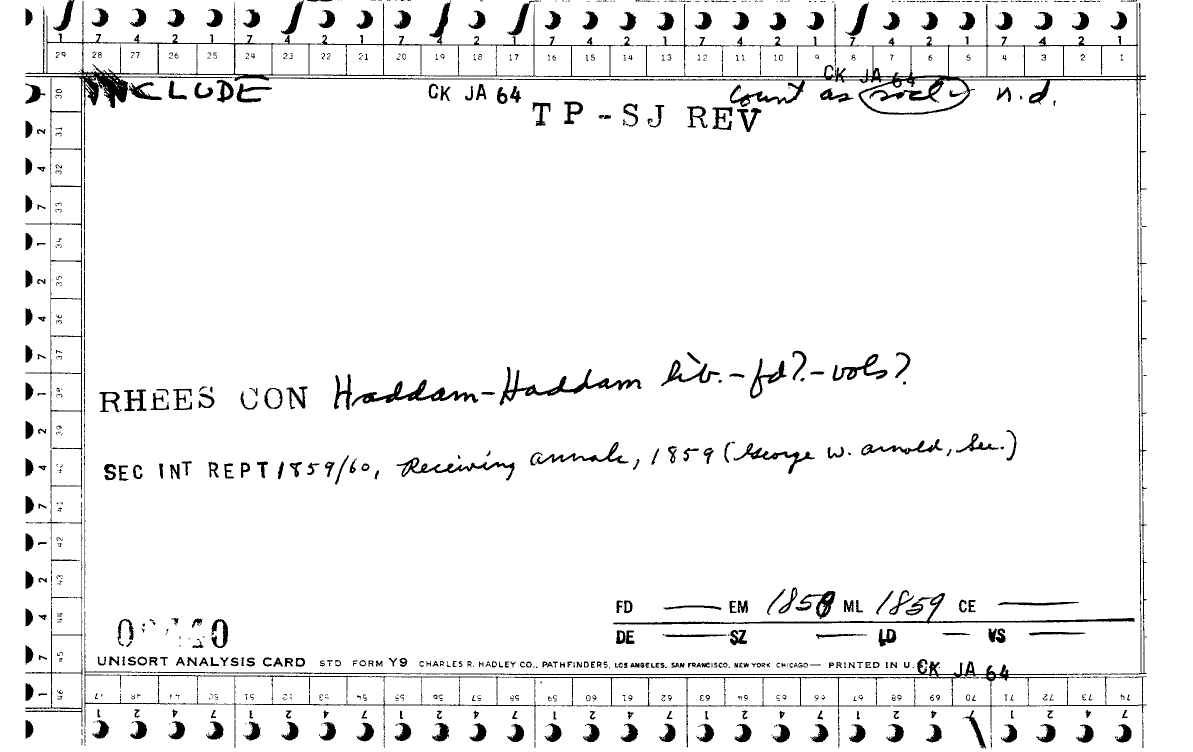 1 7 4 2 1 7 4 2 1 7 4 2 1 7 4 2 1 7 4 2 1 7 4 2 1 7 4 2 1
29 28 27 26 25 24 23 22 21 20 19 18 17 16 15 14 13 12 11 10 9 8 7 6 5 4 3 2 1
CK JA 64
CLUDE CK JA 64 count as socl n.d.
TP-SJ REV
1 30
2 31
4 32
7 33
1 34
2 35
4 36
7 37
RHEES CON Haddam-Haddam lib.-fd?-vols?
1 38
2 39
SEC INT REPT 1859/60, Receiving annals, 1859 (George W. Arnold, Sec.)
4 40
7 41
1 42
2 43
FD EM 1858 ML 1859 CE
4 44
DE SZ LD VS
7 45
UNISORT ANALYSIS CARD STD FORM Y9 CHARLES R. HADLEY CO., PATHFINDERS, LOS ANGELES, SAN FRANCISCO, NEW YORK CHICAGO— PRINTED IN U.
CK JA 64
1 46
47 48 49 50 51 52 53 54 55 56 57 58 59 60 61 62 63 64 65 66 67 68 69 70 71 72 73 74
1 2 4 7 1 2 4 7 1 2 4 7 1 2 4 7 1 2 4 7 1 2 4 7 1 2 4 7